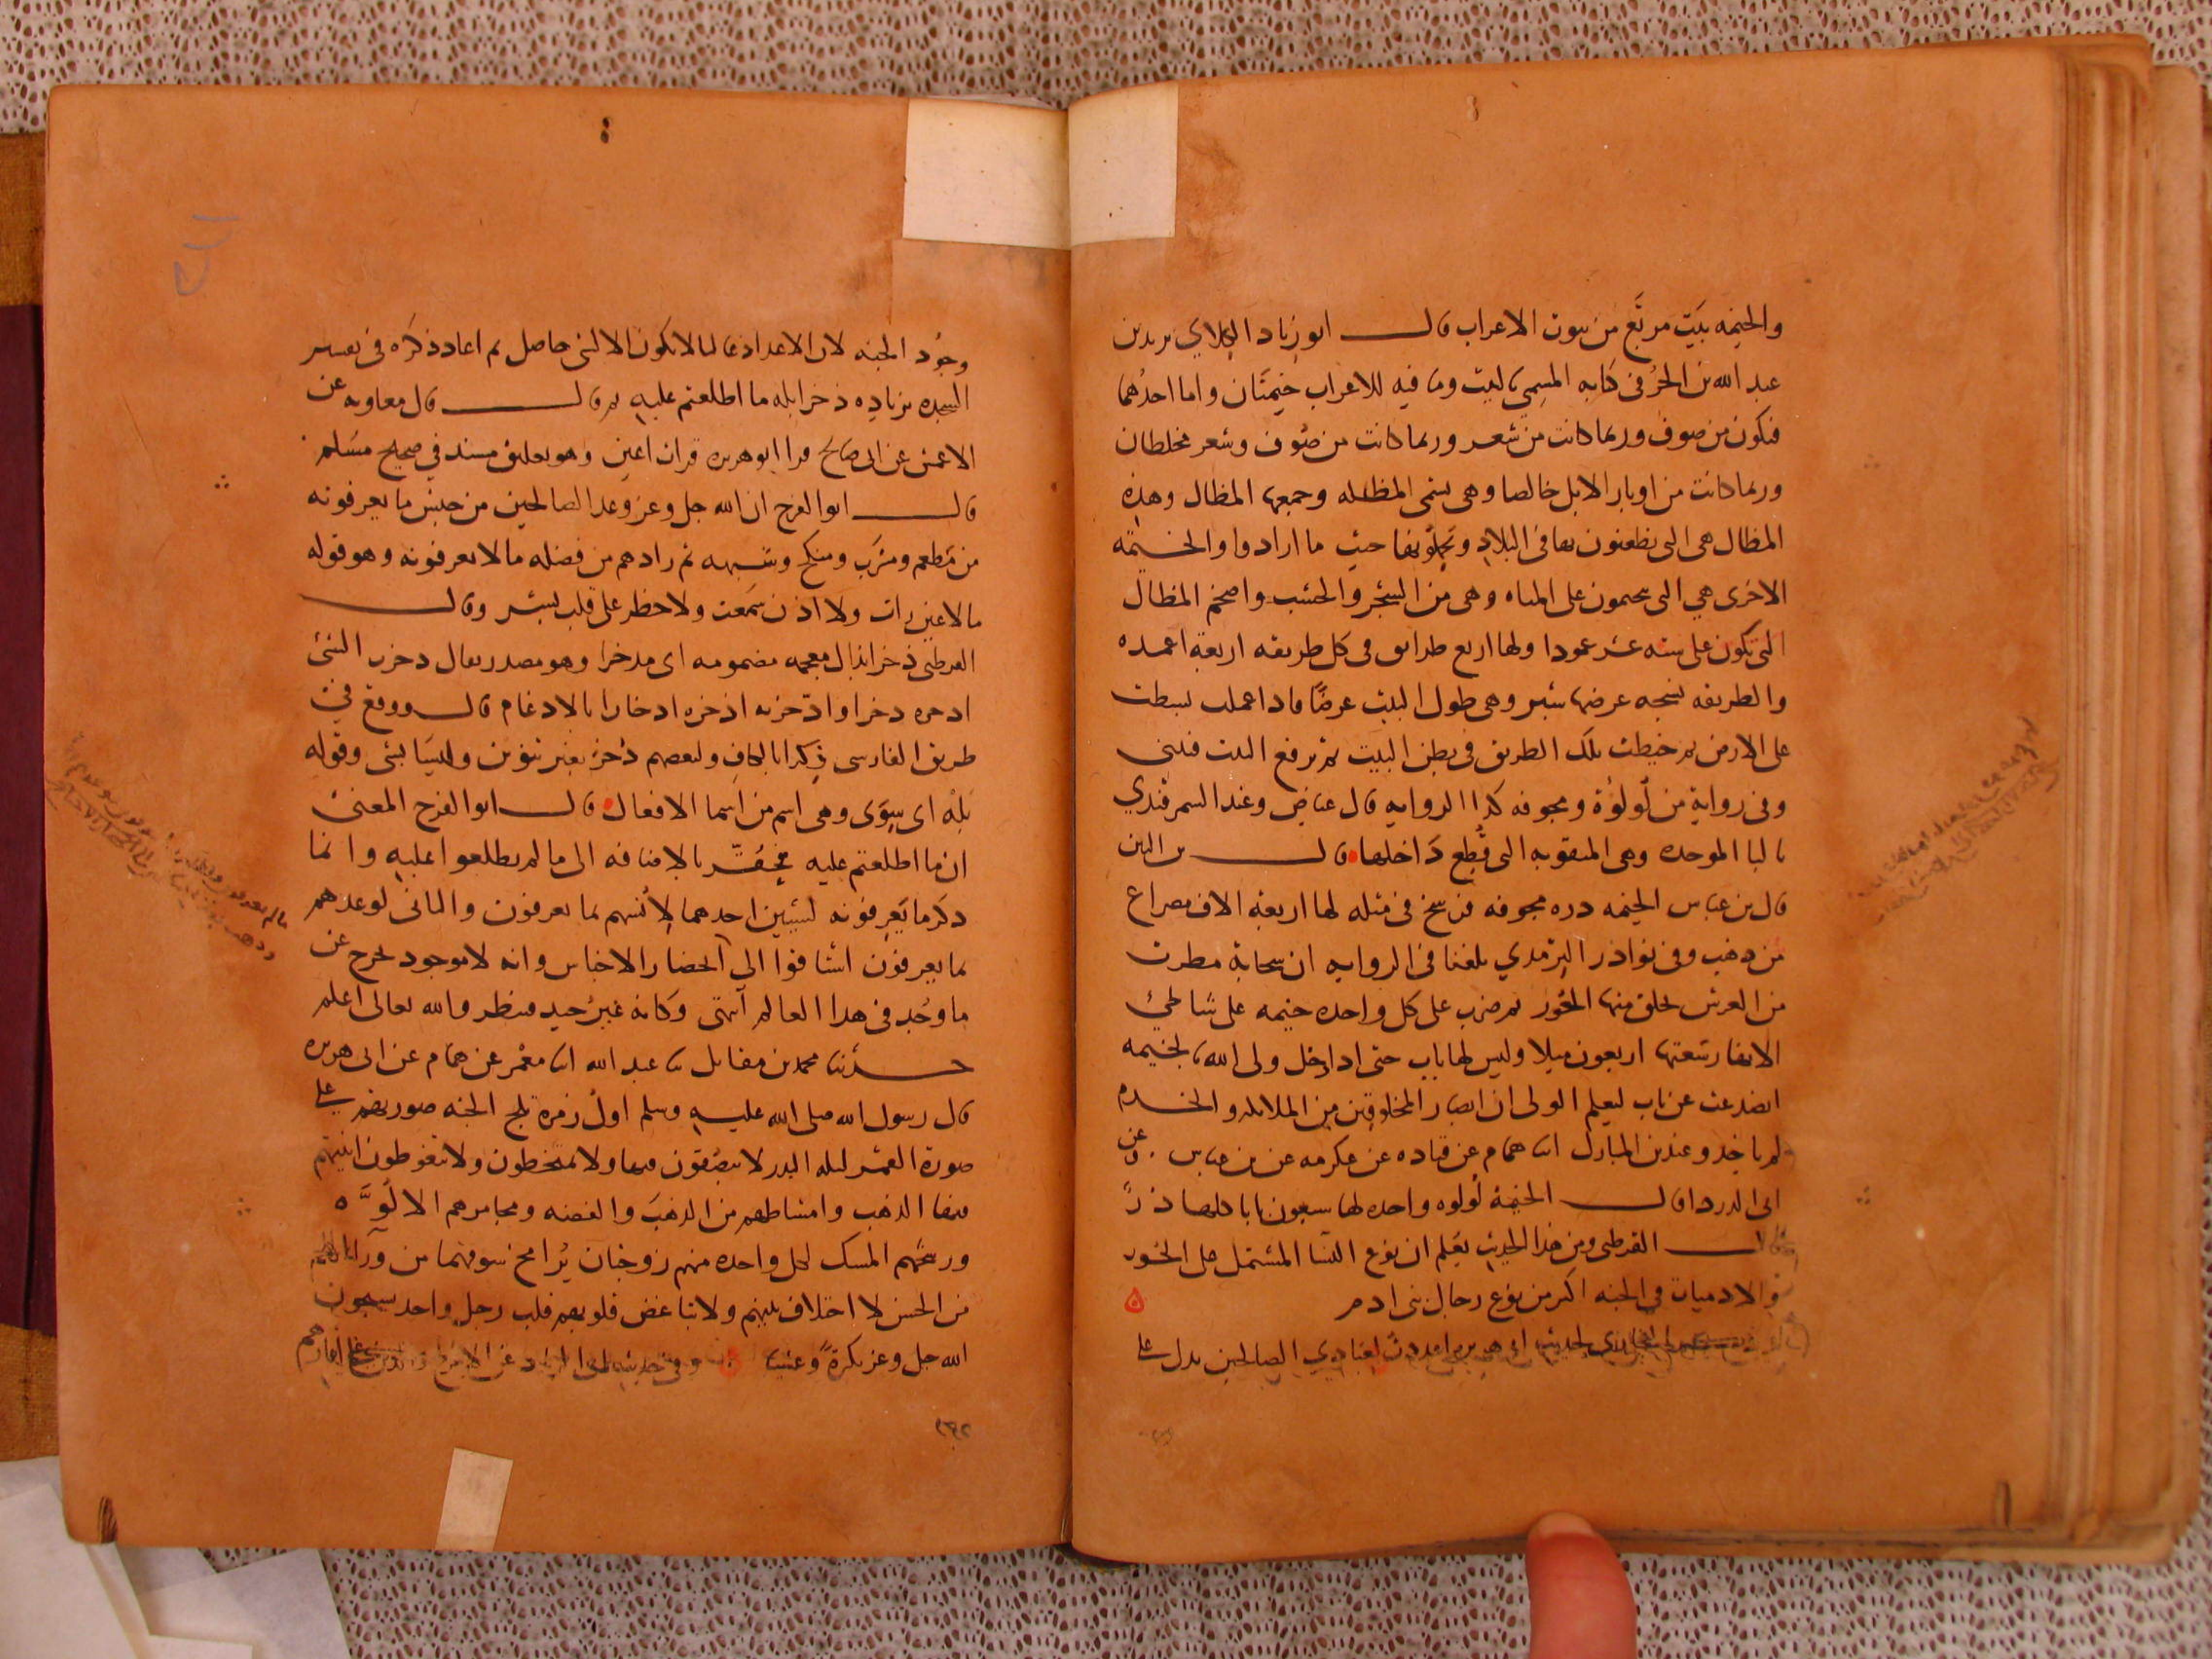 والخيمه بيت مربع من بيوت الاعراب قال ابو زياد الكلابي يزيد بن
عبد الله بن الحر في كتابه المسمى بالبيت وما فيه للاعراب خيمتان واما احدهما
فتكون من صوف وربما كانت من شعر وربما كانت من صوف وشعر مخلطان
وربما كانت من اوبار الابل خالصا وهي تسمى المظله وجمعها المظال وهذه
المظال هي التي يظعنون بها في البلاد ويحلو بها حيث ما ارادوا والخيمة
الاخرى هي التي يخيمون على المياه وهي من الشجر والخشب واضخم المظال
التي تكون على سته عشر عمودا ولها اربع طرايق في كل طريقه اربعة اعمده
والطريقه نسجه عرضها شبر وهي طول البيت عرضا فاذا عملت بسطت
على الارض ثم خيطت تلك الطريق في بطن البيت ثم يرفع البيت فيبنى
وفي رواية من لولوة ومجوفه كذا الروايه قال عياض وعند السمرقندي
بالبا الموحده وهي المثقوبه التي قطع داخلها قال بن التين
قال بن عباس الخيمه دره مجوفه فرسخ في مثله لها اربعة الاف مصراع
من ذهب وفي نوادر الترمذي بلغنا في الروايه ان سحابة مطرت
من العرش فخلق منها الحور ثم ضرب على كل واحده خيمه على شاطئ
الانهار سعتها اربعون ميلا وليس لها باب حتى اذا دخل ولي الله بالخيمه
انصدعت عن باب ليعلم الولي ان ابصار المخلوقين من الملائكه والخدم
لم ياخذ وعند بن المبارك انا همام عن قتاده عن عكرمه عن بن عباس وعن
ابي الدردا قال الخيمة لولوه واحده لها سبعون بابا كلها در
قال القرطبي ومن هذا الحديث يعلم ان نوع النسا المشتمل على الحور
والادميات في الجنه اكثر من نوع رجال بني ادم
البخاري لحديث ابي هريره اعددت لعبادي الصالحين يدل على
وجود الجنه لان الاعداد غالبا لا يكون الا لشي حاصل ثم اعاد ذكره في تفسير
السجده بزياده ذخرا بله ما اطلعتم عليه ثم قال قال معاويه عن
الاعمش عن ابي صالح قرا ابو هريره قرات اعين وهو تعليق مسند في صحيح مسلم
قال ابو الفرج ان الله جل وعز وعد الصالحين من جنس ما يعرفونه
من مطعم ومشرب ومنكح وشبهه ثم زادهم من فضله ما لا يعرفونه وهو قوله
ما لا عين رات ولا اذن سمعت ولا خطر على قلب بشر وقال
القرطبي ذخرا بذال معجمه مضمومه اى مدخرا وهو مصدر يقال ذخرت الشئ
اذخره ذخرا واذخرته اذخره ادخارا بالادغام قال ووقع في
طريق الفارسي ذكرا بالكاف ولبعضهم ذخر بغير تنوين وليسا بشى وقوله
بله اى سوى وهي اسم من اسما الافعال قال ابو الفرج المعنى
ان ما اطلعتم عليه محتقر بالاضافه الى ما لم يطلعوا عليه وانما
ذكر ما يعرفونه لشيئين احدهما لأنسهم بما يعرفون والثاني لو عدهم
بما يعرفون اشتاقوا الى الحضار الاجناس وانه لا موجود يخرج عن
ما وجد في هذا العالم انتهى وكانه غير جيد فينظر والله تعالى اعلم
حدثنا محمد بن مقاتل ثنا عبد الله انا معمر عن همام عن ابى هريره
قال رسول الله صلى الله عليه وسلم اول زمرة تلج الجنه صورتهم على
صورة القمر ليله البدر لا يبصقون فيها ولا يمتخطون ولا يتغوطون انيتهم
فيها الذهب وامشاطهم من الذهب والفضه ومجامرهم الالوه
ورشحهم المسك لكل واحده منهم زوجتان يرا مخ سوقهما من ورا اللحم
من الحسن لا اختلاف بينهم ولا تباغض قلوبهم قلب رجل واحد يسبحون
الله جل وعز بكرة وعشيا وفي حديث ابي الزناد عن الاعرج والذين على اثارهم